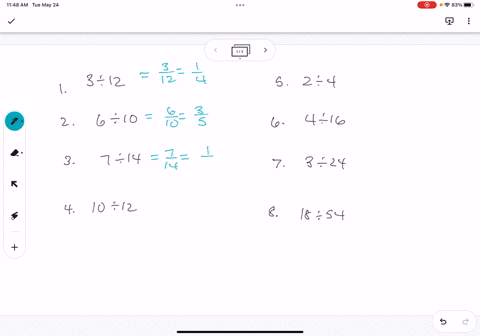 11:48 AM Tue May 24
83%
1/3
1. 3÷12 = 3/12 = 1/4
2. 6÷10 = 6/10 = 3/5
3. 7÷14 = 7/14 = 1/
4. 10÷12
5. 2÷4
6. 4÷16
7. 3÷24
8. 18÷54